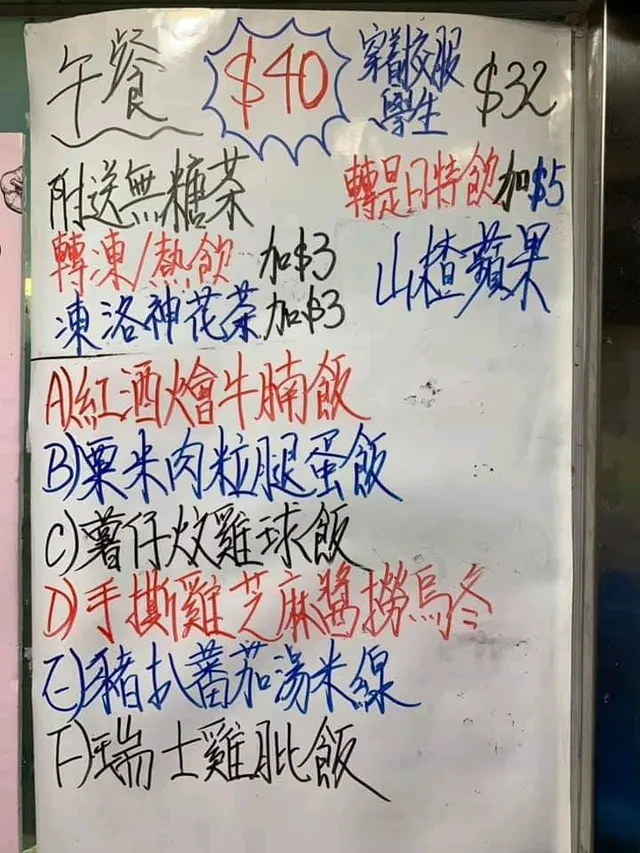 午餐 $40 穿着校服學生 $32
附送無糖茶
轉是日特飲加$5
轉凍/熱飲 加$3
山楂蘋果
凍洛神花茶加$3
A)紅酒燴牛腩飯
B)粟米肉粒腿蛋飯
C)薯仔炆雞球飯
D)手撕雞芝麻醬撈烏冬
E)豬扒蕃茄湯米線
F)瑞士雞肶飯